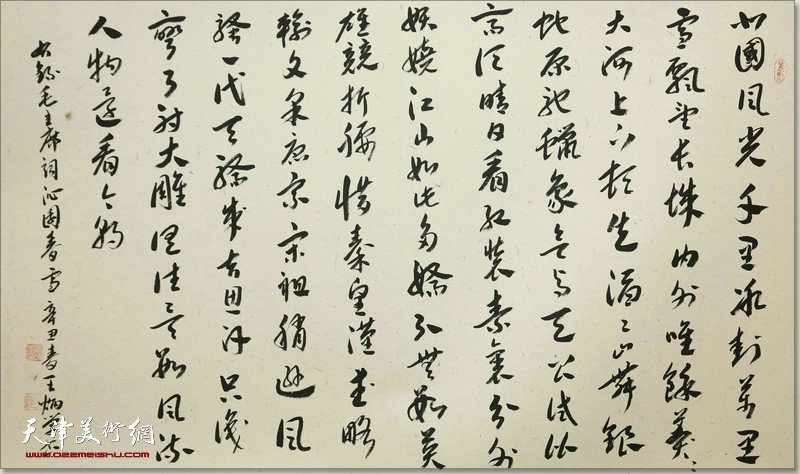 北國風光千里冰封萬里
雪飄望长城内外唯餘莽〻
大河上下頓失滔〻山舞銀
蛇原驰蠟象欲与天公试比
高须晴日看红装素裹分外
妖娆江山如此多娇引無数英
雄競折腰惜秦皇漢武略
輸文采唐宗宋祖稍遜風
骚一代天骄成吉思汗只識
彎弓射大雕俱往矣数風流
人物還看今朝
毛主席詞沁園春雪辛丑春王炳学
天津美術網
www.022meishu.com